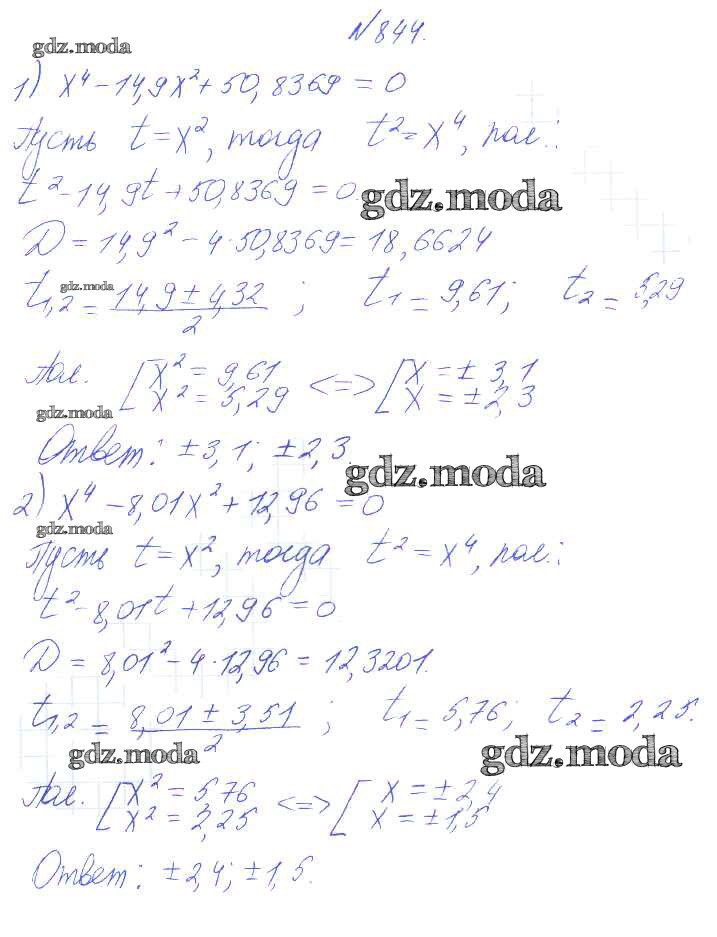 №844.
gdz.moda
1) x⁴ - 14,9x² + 50,8369 = 0
Пусть t = x², тогда t² = x⁴, пол.:
t² - 14,9t + 50,8369 = 0.
gdz.moda
D = 14,9² - 4·50,8369 = 18,6624
gdz.moda
t₁,₂ = (14,9 ± 4,32)/2 ; t₁ = 9,61; t₂ = 5,29
Пол. [x² = 9,61 <=> [x = ± 3,1
x² = 5,29 x = ± 2,3
gdz.moda
Ответ: ±3,1; ±2,3.
gdz.moda
2) x⁴ - 8,01x² + 12,96 = 0
gdz.moda
Пусть t = x², тогда t² = x⁴, пол.:
t² - 8,01t + 12,96 = 0
D = 8,01² - 4·12,96 = 12,3201.
t₁,₂ = (8,01 ± 3,51)/2 ; t₁ = 5,76; t₂ = 2,25.
gdz.moda
gdz.moda
Пол. [x² = 5,76 <=> [x = ± 2,4
x² = 2,25 x = ± 1,5
Ответ: ±2,4; ±1,5.